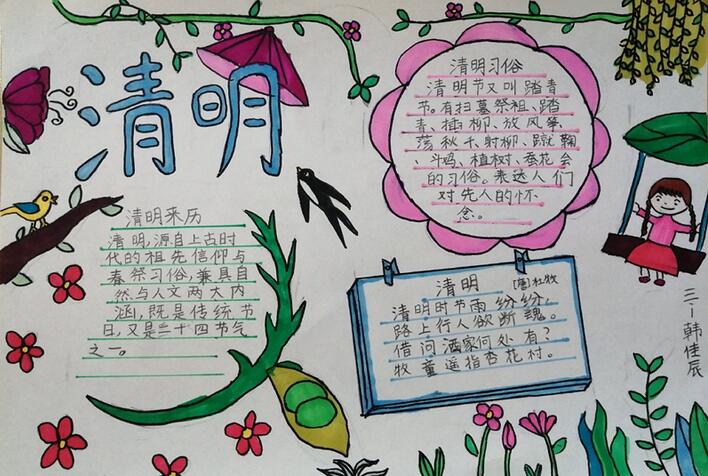 清明
清明来历
清明,源自上古时
代的祖先信仰与
春祭习俗,兼具自
然与人文两大内
涵,既是传统节
日,又是二十四节气
之一。
清明习俗
清明节又叫踏青
节。有扫墓祭祖、踏
青、插柳、放风筝、
荡秋千、射柳、蹴鞠
、斗鸡、植树、蚕花会
的习俗。表达人们
对先人的怀
念。
清明 [唐]杜牧
清明时节雨纷纷,
路上行人欲断魂。
借问酒家何处有?
牧童遥指杏花村。
三一韩佳辰